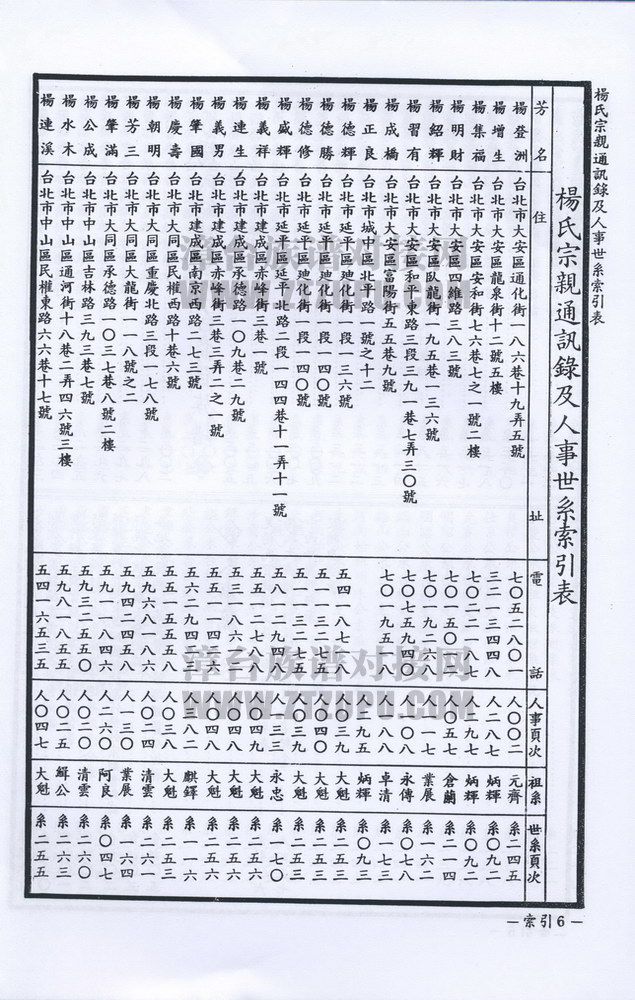 楊氏宗親通訊錄及人事世系索引表
楊氏宗親通訊錄及人事世系索引表
芳名 住址 電話 人事頁次 祖系 世系頁次
楊登洲 台北市大安區通化街一八六巷十九弄五號 七〇五二八〇一 人〇〇二 元齊 系二四五
楊增生 台北市大安區龍泉街十二號五樓 三二一三四四八 人二八七 炳輝 系〇九二
楊集福 台北市大安區安和街七六巷七之一號二樓 七〇二二一八七 人〇九七 炳輝 系〇九二
楊明財 台北市大安區四維路三八三號 人〇五七 倉蘭 系二一四
楊紹輝 台北市大安區臥龍街一九五巷一三六號 七〇一九二六八 人一一七 業展 系一六二
楊習有 台北市大安區和平東路三段三九一巷七弄三〇號 七〇七五九四〇 人一八八 永傳 系〇七八
楊成橋 台北市大安區富陽街五五巷九號 卓清 系一七三
楊正良 台北市城中區北平路一號之十二 炳輝 系〇九三
楊德輝 台北市延平區迪化街一段一三六號 大魁 系二五三
楊德勝 台北市延平區迪化街一段一四〇號 大魁 系二五三
楊德修 台北市延平區迪化街一段一四〇號 大魁 系二五三
楊盛輝 台北市延平區延平北路二段一四四巷十一弄十一號 永忠 系一七〇
楊義祥 台北市建成區赤峰街三巷一號 大魁 系二五六
楊連生 台北市建成區承德路一〇九巷二九號 大魁 系二五六
楊義男 台北市建成區赤峰街三巷三弄二之一號 大魁 系二五五
楊肇國 台北市建成區南京西路二七三號 人三八二 麒鐸 系一一六
楊慶壽 台北市大同區民權西路十巷六號 五五一五五四五 人〇三八 大魁 系二五三
楊朝明 台北市大同區重慶北路三段一七八號 五九六八一八六 人〇二四 清雲 系二六一
楊芳三 台北市大同區大龍街一一八號之二 五九四二四五八 人一三〇 業展 系一六四
楊肇滿 台北市大同區承德路一〇三七巷八號二樓 五九一一八四六 人二六〇 阿良 系〇四七
楊公成 台北市中山區吉林路三九三巷七號 五九三二五五〇 人〇二〇 清雲 系二六〇
楊水木 台北市中山區通河街十八巷二弄四六號三樓 五九八一八五五 人〇二五 緝公 系二六三
楊連溪 台北市中山區民權東路六六巷十七號 五四一六五三五 人〇四七 大魁 系二五五
—索引6—
漳台族谱对接网
WWW.ZTZUPU.COM
漳台族谱对接网
WWW.ZTZUPU.COM